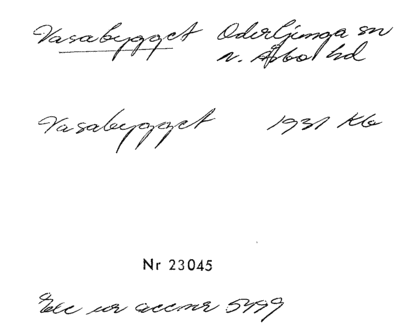 Vasabygget Oderljunga sn
n. Åsbo hd
Vasabygget 1931 Kb
Nr 23045
Exc ur accnr 5499